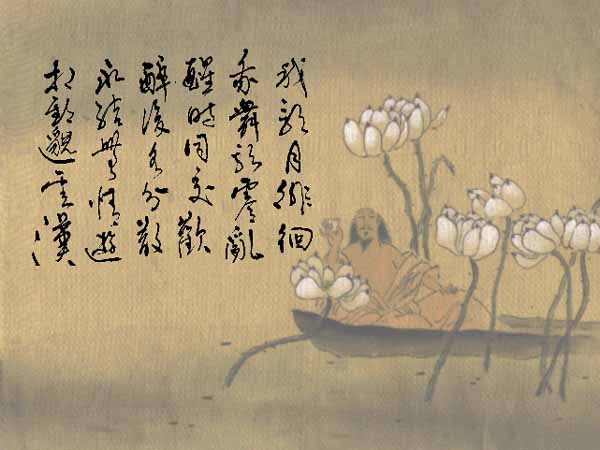 我歌月徘徊
我舞影零亂
醒時同交歡
醉後各分散
永結無情遊
相期邈雲漢